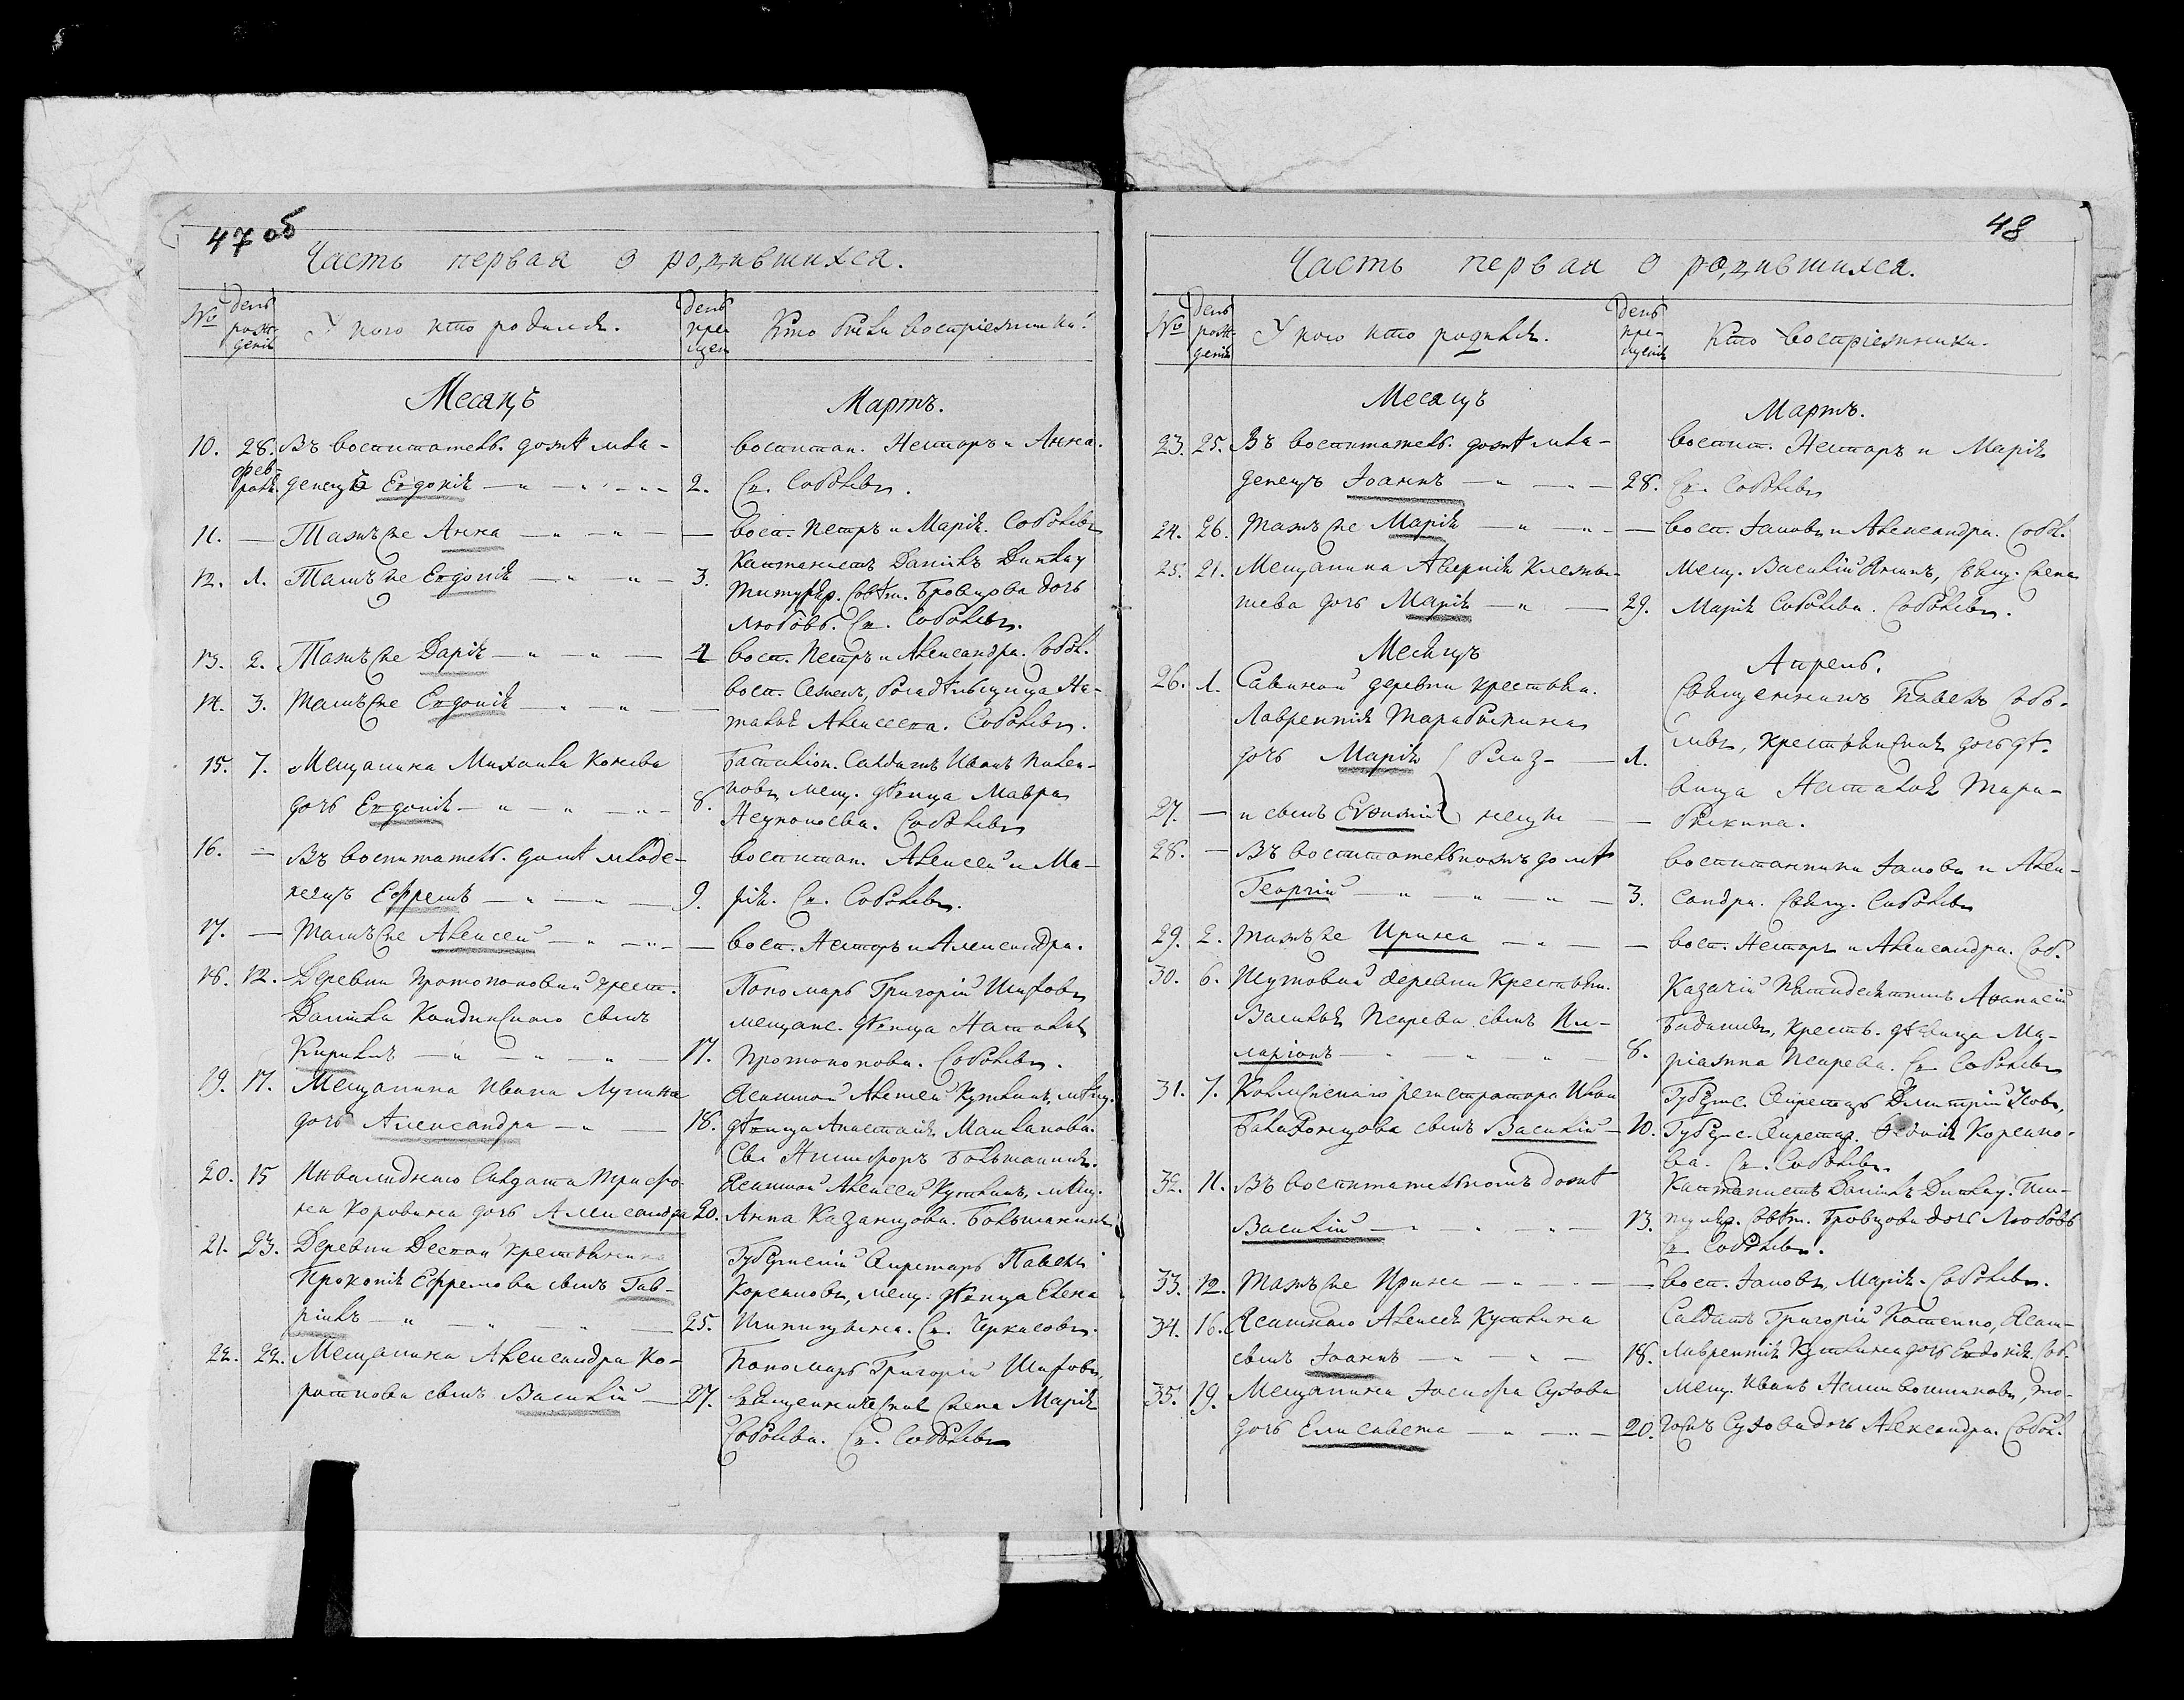 47 об
Часть первая о родившихся.
№ День рождения У кого кто родился. День крещен Кто были воспріемники.
Месяцъ Мартъ.
10. 28. феврал. Въ воспитательн. домѣ мла-
денецъ Евдокія 2.
воспитан. Несторъ и Анна.
Св. Соболевъ.
11. — Тамъ же Анна — восп. Петръ и Марія. Соболевъ
12. 1. Тамъ же Евдокія 3.
Кантонистъ Даніилъ
Титуляр. Совѣт. Бровцова дочь
Любовь. Св. Соболевъ.
13. 2. Тамъ же Дарія 4 восп. Петръ и Александра. Собол.
14. 3. Тамъ же Евдокія —
восп. Семенъ, Солдатка На-
талья Алексеева. Соболевъ.
15. 7. Мещанина Михаила Конева
дочь Евдокія 8.
Баталіон. Салдатъ Иванъ
мещ. дѣвица Мавра
Соболевъ
16. — Въ воспитательн. домѣ младе-
нецъ Ефремъ 9.
воспитан. Алексей и Ма-
рія. Св. Соболевъ.
17. — Тамъ же Алексей — восп. Несторъ и Александра.
18. 12. Деревни Протопоповой крест.
Даниила Кандинскаго сынъ
Кирилъ 17.
Пономарь Григорій Шиховъ
мещанс. дѣвица Наталья
Протопопова. Соболевъ.
19. 17. Мещанина Ивана Лунина
дочь Александра 18.
Ясашной Алексей Куткинъ, мещ.
дѣвица Анастасія
Св. Никифоръ Большанинъ.
20. 15 Инвалиднаго Салдата Трифо-
на Коровина дочь Александра 20.
Ясашной Алексей Куткинъ, мещ.
Анна Казанцова. Большанинъ
21. 23. Деревни крестьянина
Прокопія Ефремова сынъ Гав-
ріилъ 25.
Губернскій Секретарь Павелъ
Корсаковъ, мещ. дѣвица Елена
Шипицына. Св. Черкасовъ.
22. 22. Мещанина Александра Ко-
роткова сынъ Василій 27.
Пономарь Григорій Шиховъ,
Священническая жена Марія
Соболева. Св. Соболевъ
48
Часть первая о родившихся.
№ День рождения У кого кто родился. День крещения Кто воспріемники.
Месяцъ Мартъ.
23. 25. Въ воспитательн. домѣ мла-
денецъ Іоаннъ 28.
воспит. Несторъ и Марія
Св. Соболевъ
24. 26. Тамъ же Марія — восп. Іаковъ и Александра. Собол.
25. 21. Мещанина Аверкія
дочь Марія 29.
Мещ. Василій, Свящ. жена
Марія Соболева. Соболевъ.
Месяцъ Апрель.
26. 1. Савиной деревни крестьян.
Лаврентія Тарабыкина
дочь Марія близ- 1.
27. — и сынъ Евфимій нецы —
Священникъ Павелъ Собо-
левъ, крестьянская дочь дѣ-
вица Наталья Тара-
быкина.
28. — Въ воспитательномъ домѣ
Георгій 3.
воспитанники Іаковъ и Алек-
сандра. Свящ. Соболевъ
29. 2. Тамъ же Ирина — восп. Несторъ и Александра. Соб.
30. 6. Шутовой деревни Крестьян.
Василья Псарева сынъ Ил-
ларіонъ 8.
Казачій Пятидесятникъ Афанасій
крестьян. дѣвица Ма-
ріамна Псарева. Св. Соболевъ
31. 7. Коллежскаго регистратора Иван
сынъ Василій 10.
Губернс. Секретарь Дмитрій
Губернс. Секретар. Корсако-
ва. Св. Соболевъ.
32. 11. Въ воспитательномъ домѣ
Василій 13.
Кантонистъ Даніилъ Ти-
туляр. Совѣт. Бровцова дочь Любовь
Св. Соболевъ.
33. 12. Тамъ же Ирина — восп. Іаковъ, Марія. Соболевъ.
34. 16. Ясашнаго Алексея Куткина
сынъ Іоаннъ 18.
Салдатъ Григорій Костенко, Ясаш-
Лаврентія Куткина дочь Евдокія. Соб.
35. 19. Мещанина Іосифа Сухова
дочь Елисавета 20.
Мещ. Иванъ, то-
гожъ Сухова дочь Александра. Собол.